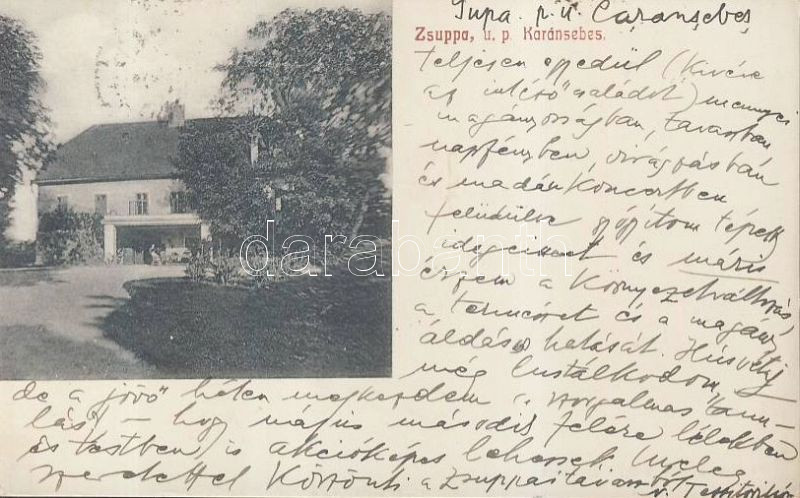 Zsupa. p. u. Caransebes
Zsuppa, u. p. Karánsebes.
teljesen egyedül (kivéve
az intéző családot) mennyei
magányosságban, tavaszban
napfényben, virágzásban
és madárkoncertben
felüdülve gyógyítom tépett
idegeimet és máris
érzem a környezetváltozás,
a természet és a magány
áldásos hatását. Húsvétig
még lustálkodom,
de a jövő héten megkezdem a szorgalmas tanu-
lást! – hogy május második felére lélekben
és testben is akcióképes lehessek. Meleg
szeretettel köszönti a zsuppai tavaszból
darabanth